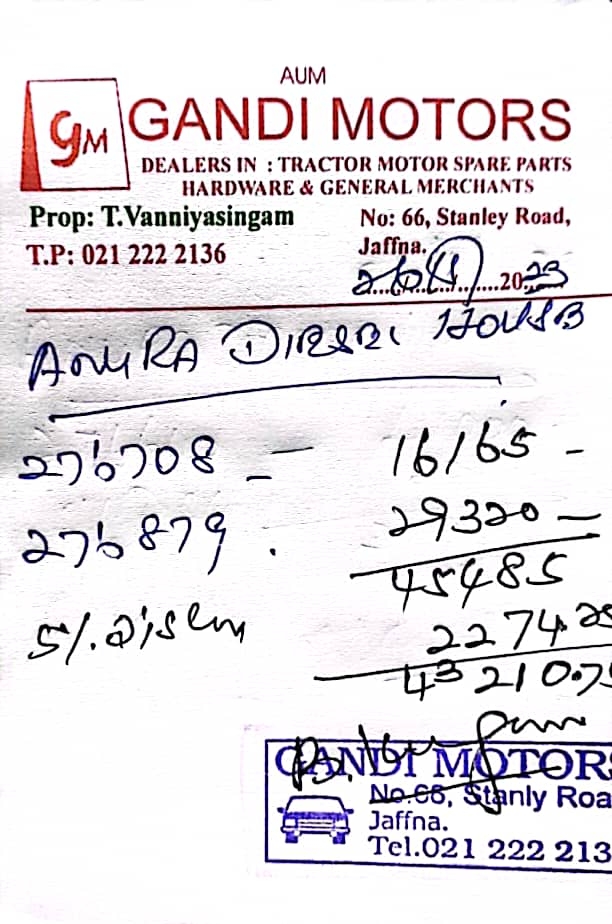 AUM
GM
GANDI MOTORS
DEALERS IN : TRACTOR MOTOR SPARE PARTS
HARDWARE & GENERAL MERCHANTS
Prop: T.Vanniyasingam
No: 66, Stanley Road,
T.P: 021 222 2136
Jaffna.
2023
ANURA DIESEL HOUSE
276708 - 16165 -
276879 . 29320 -
45485
5%
2274.25
43210.75
GANDI MOTORS
No.66, Stanly Roa
Jaffna.
Tel.021 222 213